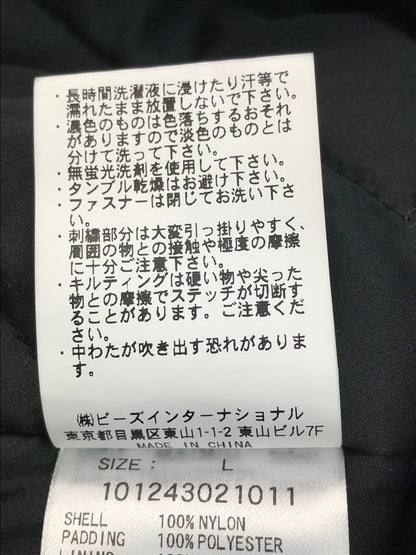 ・長時間洗濯液に浸けたり汗等で
濡れたまま放置しないで下さい。
・濃色のものは色落ちするおそれ
がありますので淡色のものとは
分けて洗って下さい。
・無蛍光洗剤を使用して下さい。
・タンブル乾燥はお避け下さい。
・ファスナーは閉じてお洗い下さ
い。
・刺繍部分は大変引っ掛りやすく、
周囲の物との接触や極度の摩擦
に十分ご注意下さい。
・キルティングは硬い物や尖った
物との摩擦でステッチが切断す
ることがあります。ご注意くだ
さい。
・中わたが吹き出す恐れがありま
す。
㈱ビーズインターナショナル
東京都目黒区東山1-1-2 東山ビル7F
MADE IN CHINA
SIZE : L
101243021011
SHELL 100%NYLON
PADDING 100%POLYESTER
LINING